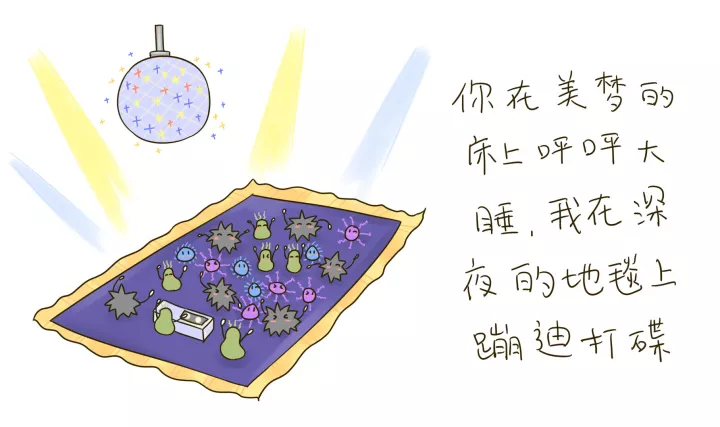 你在美梦的
床上呼呼大
睡,我在深
夜的地毯上
蹦迪打碟